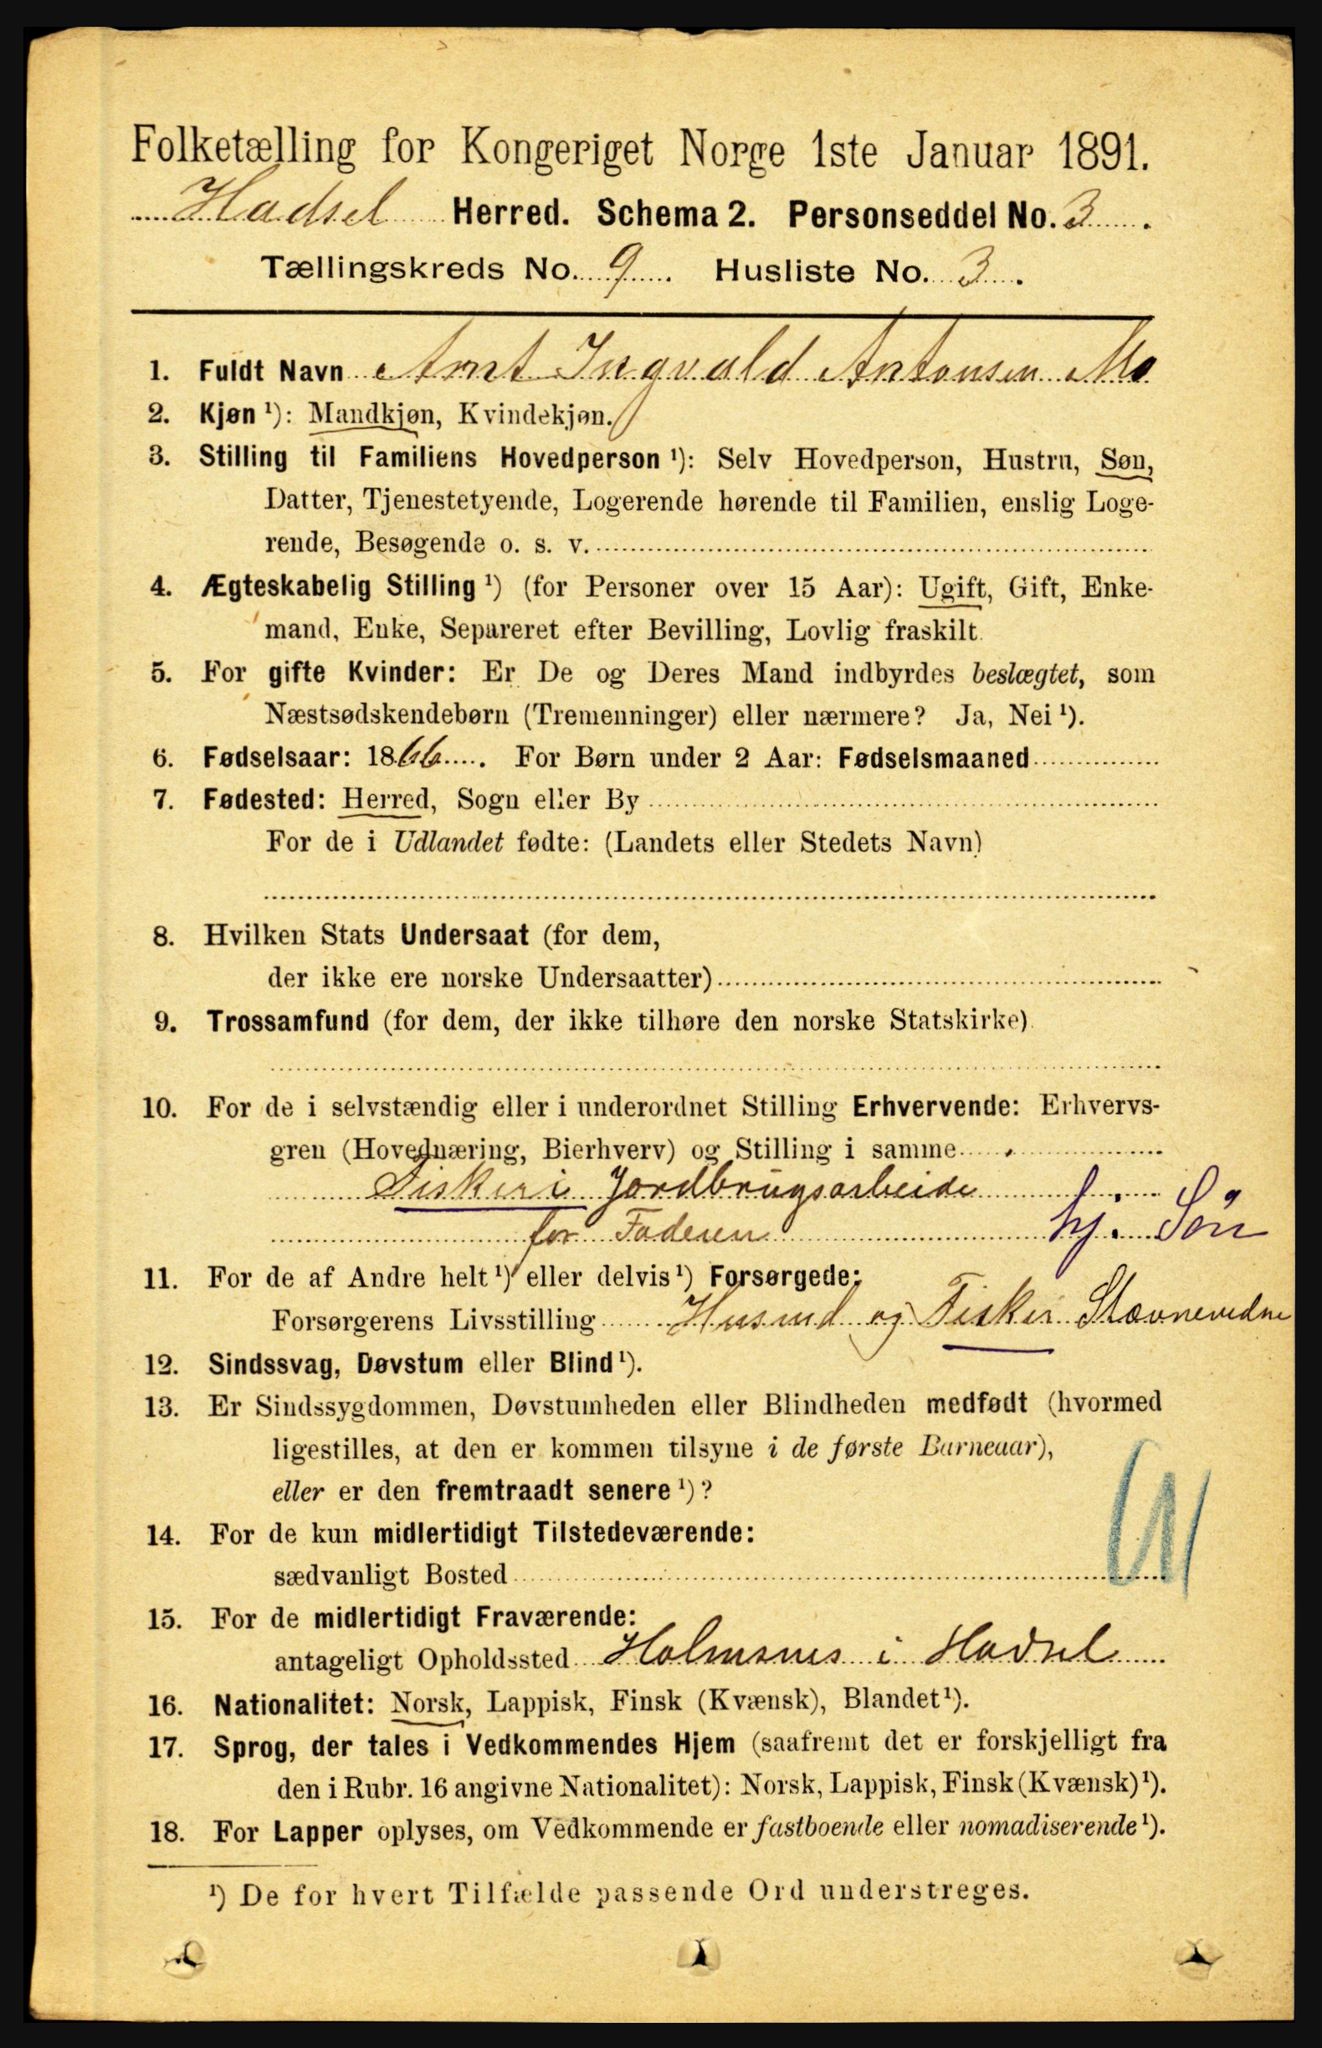 Folketælling for Kongeriget Norge 1ste Januar 1891.
Hadsel Herred. Schema 2. Personseddel No. 3.
Tællingskreds No. 9. Husliste No. 3.
1. Fuldt Navn Arnt Ingvald Antonsen Mo
2. Kjøn ¹): Mandkjøn, Kvindekjøn.
3. Stilling til Familiens Hovedperson ¹): Selv Hovedperson, Hustru, Søn,
Datter, Tjenestetyende, Logerende hørende til Familien, enslig Loge-
rende, Besøgende o. s. v.
4. Ægteskabelig Stilling ¹) (for Personer over 15 Aar): Ugift, Gift, Enke-
mand, Enke, Separeret efter Bevilling, Lovlig fraskilt.
5. For gifte Kvinder: Er De og Deres Mand indbyrdes beslægtet, som
Næstsødskendebørn (Tremenninger) eller nærmere? Ja, Nei ¹).
6. Fødselsaar: 1866. For Børn under 2 Aar: Fødselsmaaned
7. Fødested: Herred, Sogn eller By
For de i Udlandet fødte: (Landets eller Stedets Navn)
8. Hvilken Stats Undersaat (for dem,
der ikke ere norske Undersaatter)
9. Trossamfund (for dem, der ikke tilhøre den norske Statskirke)
10. For de i selvstændig eller i underordnet Stilling Erhvervende: Erhvervs-
gren (Hovednæring, Bierhverv) og Stilling i samme
Fiskeri Jordbrugsarbeide
for Faderen hj. Søn
11. For de af Andre helt ¹) eller delvis ¹) Forsørgede:
Forsørgerens Livsstilling Husmd og Fisker Stævnevidne
12. Sindssvag, Døvstum eller Blind ¹).
13. Er Sindssygdommen, Døvstumheden eller Blindheden medfødt (hvormed
ligestilles, at den er kommen tilsyne i de første Barneaar),
eller er den fremtraadt senere ¹)?
14. For de kun midlertidigt Tilstedeværende:
sædvanligt Bosted
15. For de midlertidigt Fraværende:
antageligt Opholdssted Holmsnes i Hadsel
16. Nationalitet: Norsk, Lappisk, Finsk (Kvænsk), Blandet ¹).
17. Sprog, der tales i Vedkommendes Hjem (saafremt det er forskjelligt fra
den i Rubr. 16 angivne Nationalitet): Norsk, Lappisk, Finsk (Kvænsk) ¹).
18. For Lapper oplyses, om Vedkommende er fastboende eller nomadiserende ¹).
¹) De for hvert Tilfælde passende Ord understreges.